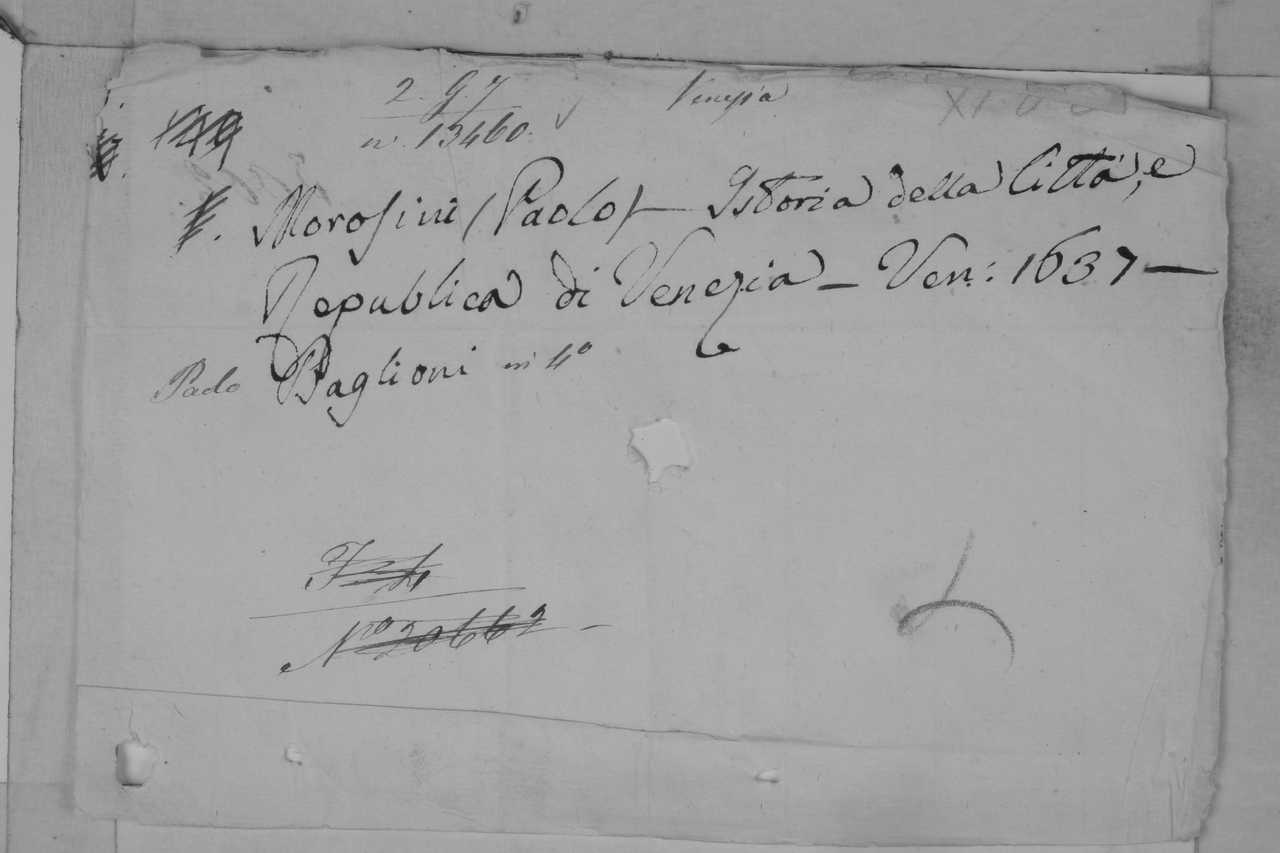 2. g. 7 Venezia
n. 13460.
Morosini (Paolo) — Istoria della Città, e
Republica di Venezia — Ven: 1637 —
Paolo Baglioni in 4º
Nº 20662